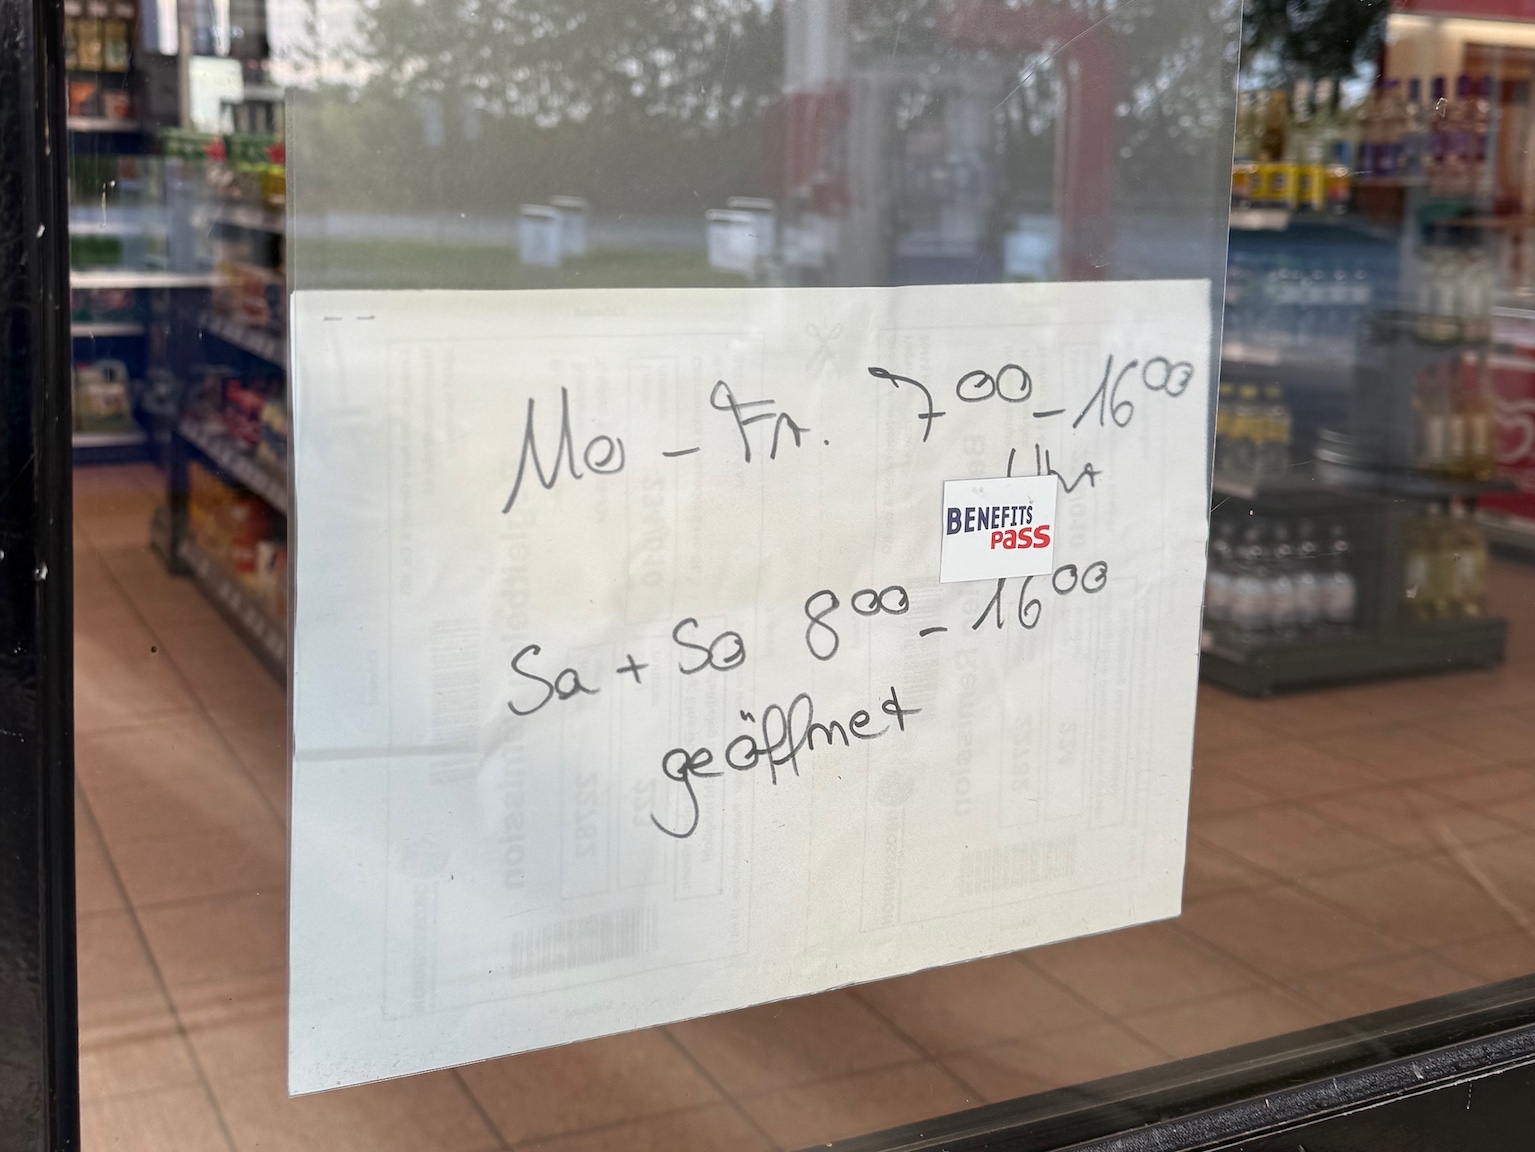 Mo - Fr. 7⁰⁰ - 16⁰⁰
Uhr
BENEFITS
PASS
Sa + So 8⁰⁰ - 16⁰⁰
geöffnet